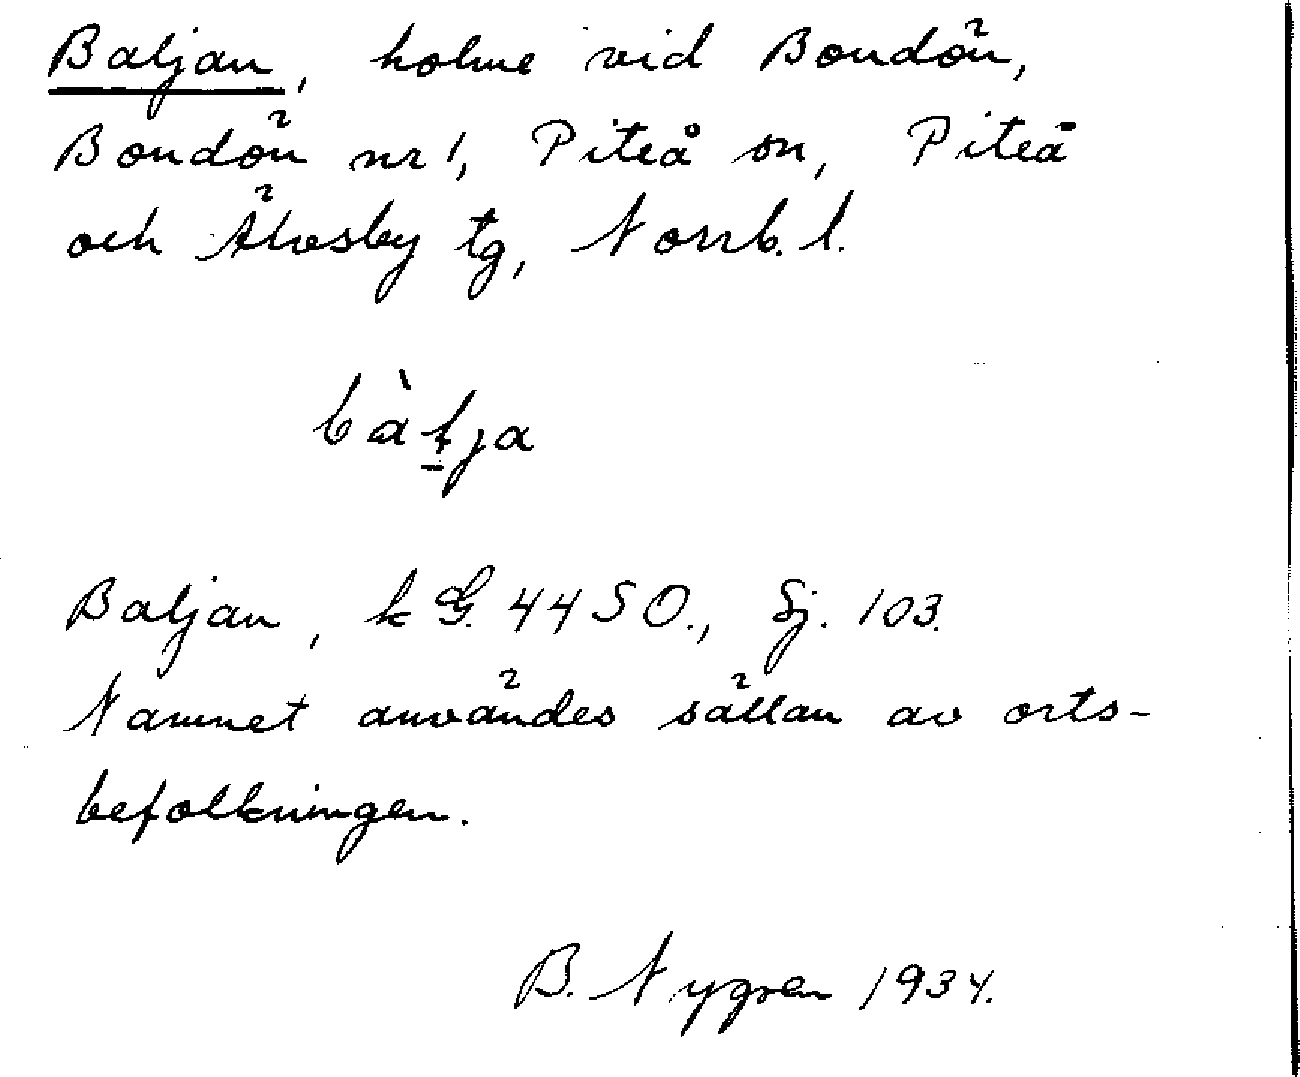 Baljan, holme vid Bondön,
Bondön nr 1, Piteå sn, Piteå
och Älvsby tg, Norrb. l.
bàłja
Baljan, k G. 44 SO., Sj. 103.
Namnet användes sällan av orts-
befolkningen.
B. Nygren 1934.